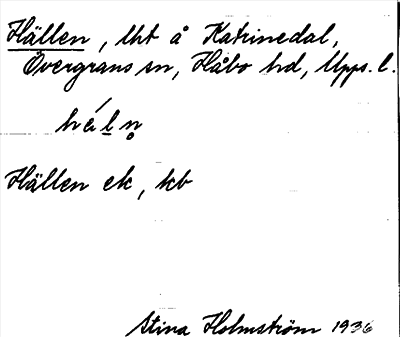 Hällen, lht å Katrinedal,
Övergrans sn, Håbo hd, Upps. l.
hélṇ̊
Hällen ek, kb
Stina Holmström 1936